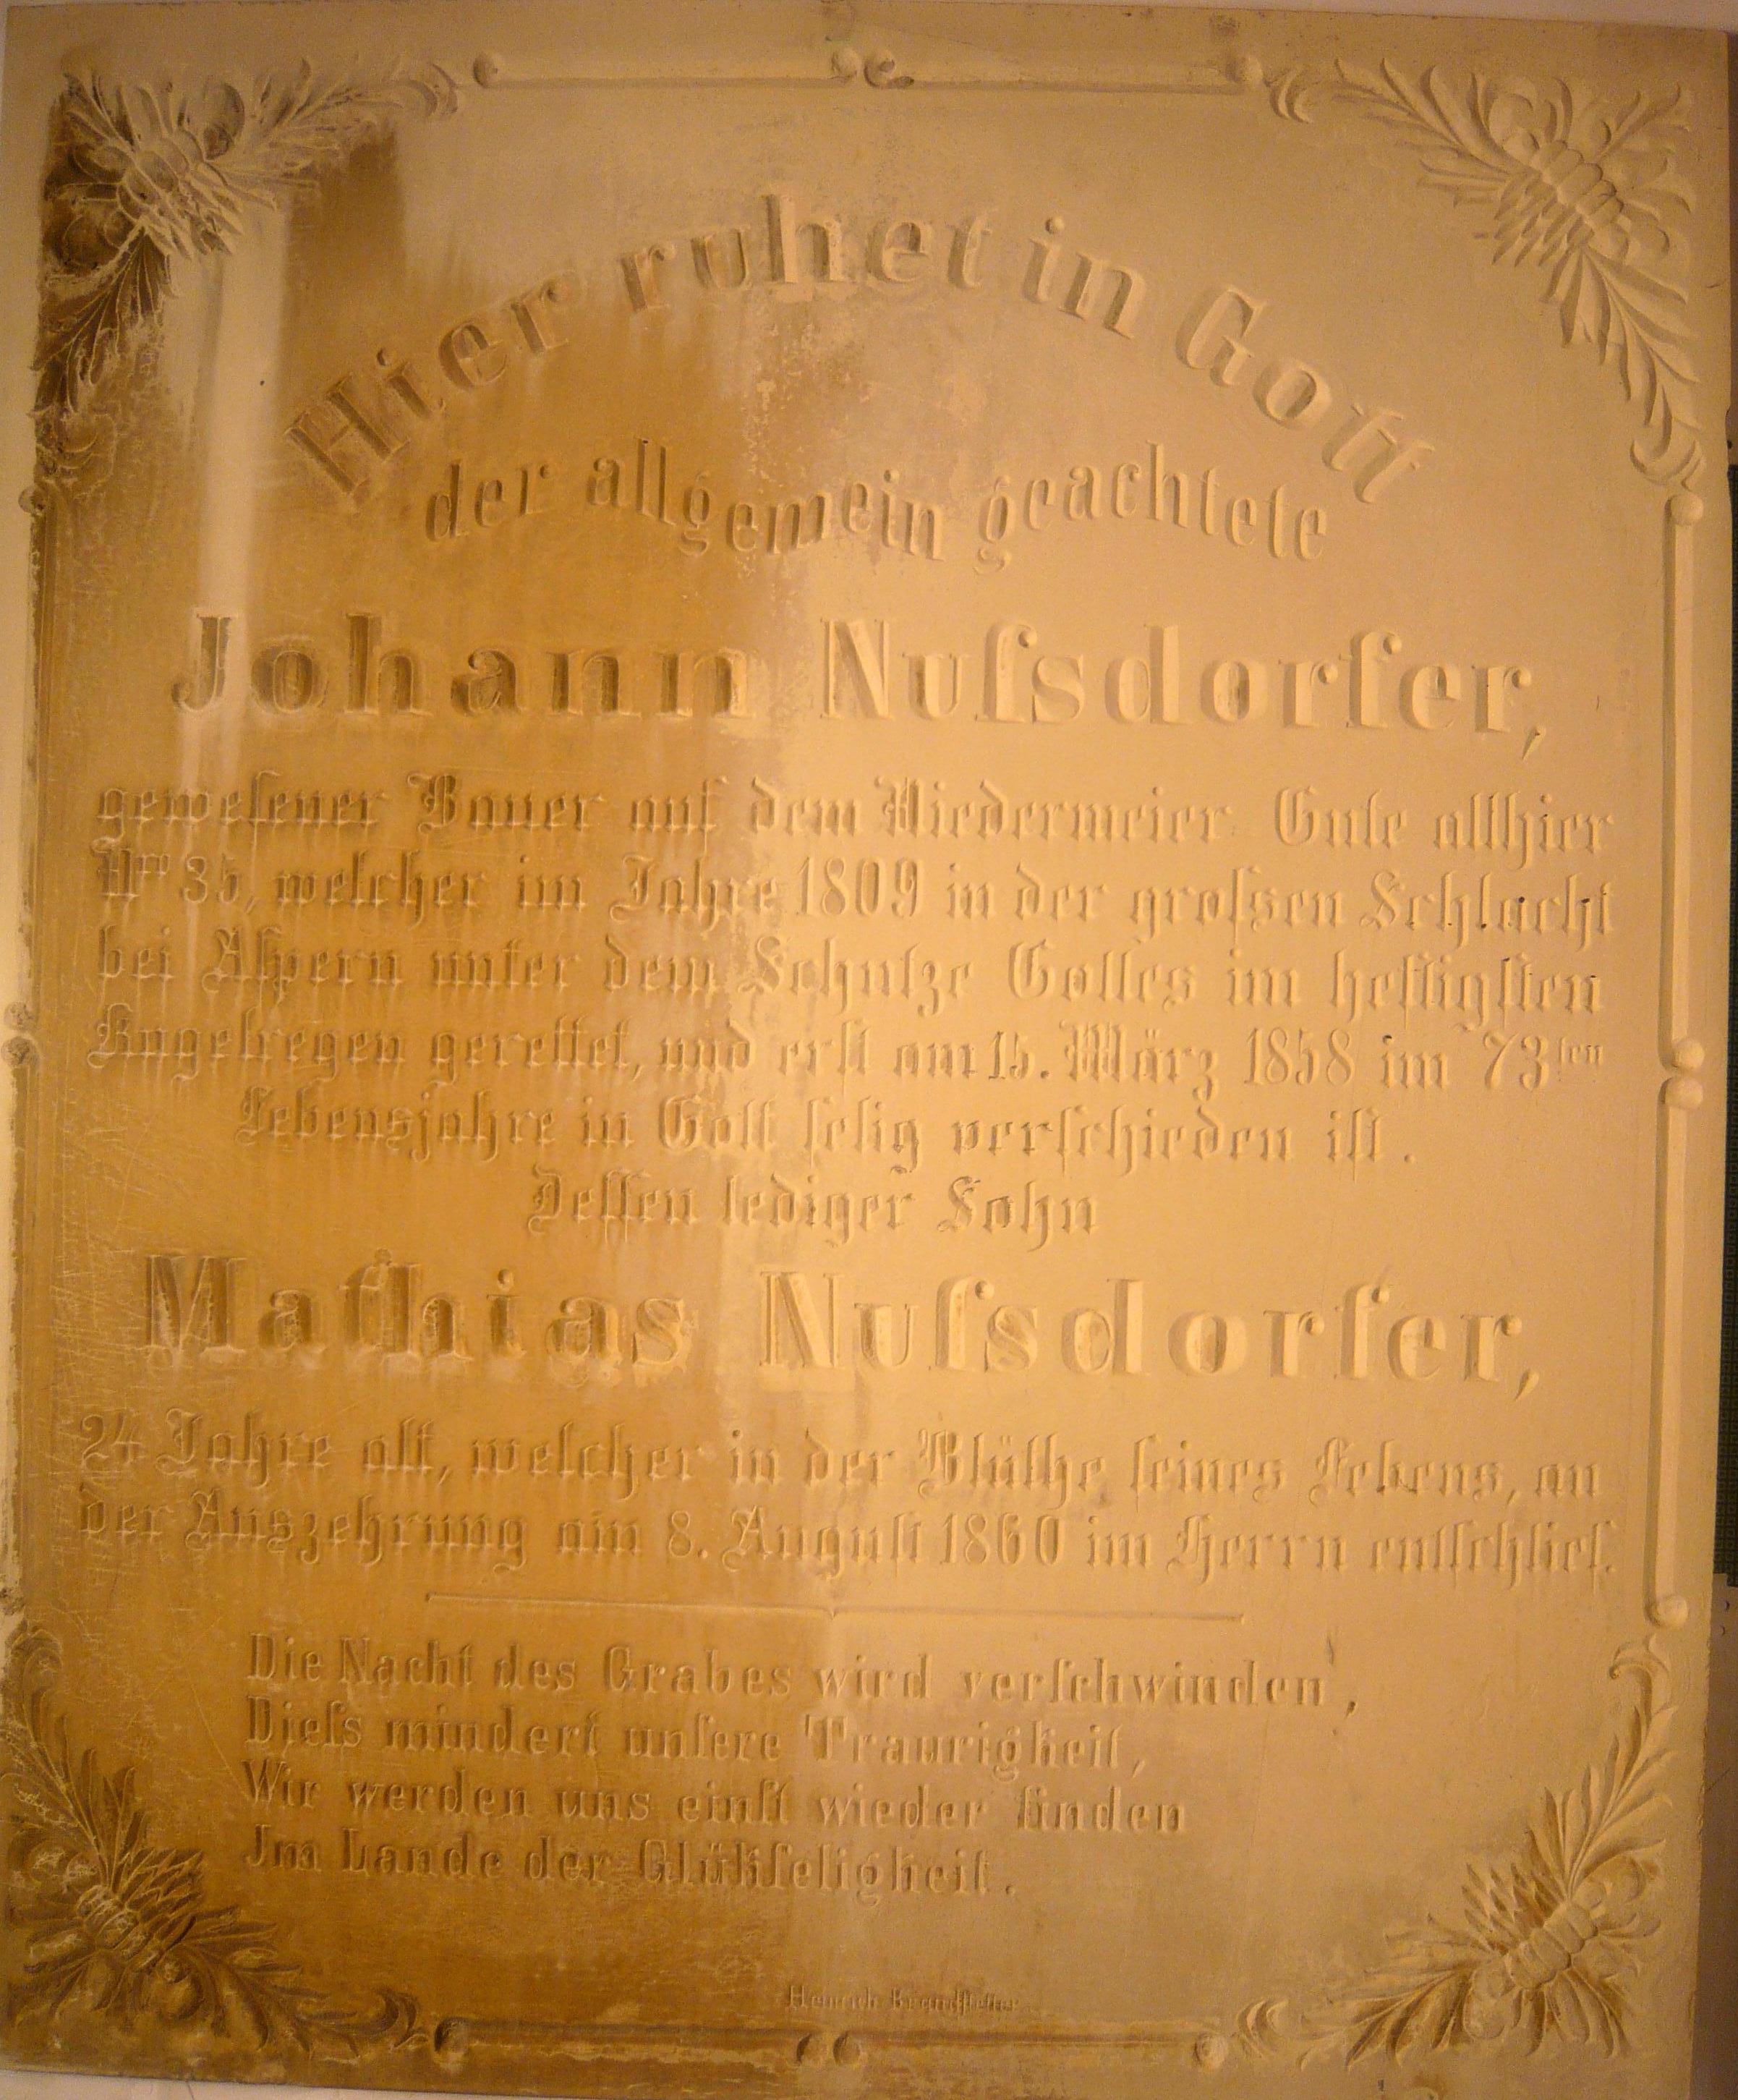 Hier ruhet in Gott
der allgemein geachtete
Johann Nuſsdorfer,
geweſener Bauer auf dem Niedermeier Gute allhier
Nro 35, welcher im Jahre 1809 in der groſsen Schlacht
bei Aſpern unter dem Schutze Gottes im heftigſten
Kugelregen gerettet, und erſt am 15. März 1858 im 73ten
Lebensjahre in Gott ſelig verſchieden iſt.
Deſſen lediger Sohn
Mathias Nuſsdorfer,
24 Jahre alt, welcher in der Blüthe ſeines Lebens, an
der Auszehrung am 8. Auguſt 1860 im Herrn entſchlief.
Die Nacht des Grabes wird verſchwinden,
Dieſs mindert unſere Traurigkeit,
Wir werden uns einſt wieder finden
Im Lande der Glükſeligkeit.
Heinrich Brandſtetter